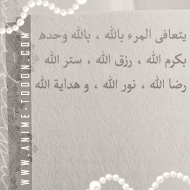 يتعافى المرء بالله ، بالله وحده
بكرم الله ، رزق الله ، ستر الله
رضا الله ، نور الله ، و هداية الله
WWW.ANIME-TOOON.COM